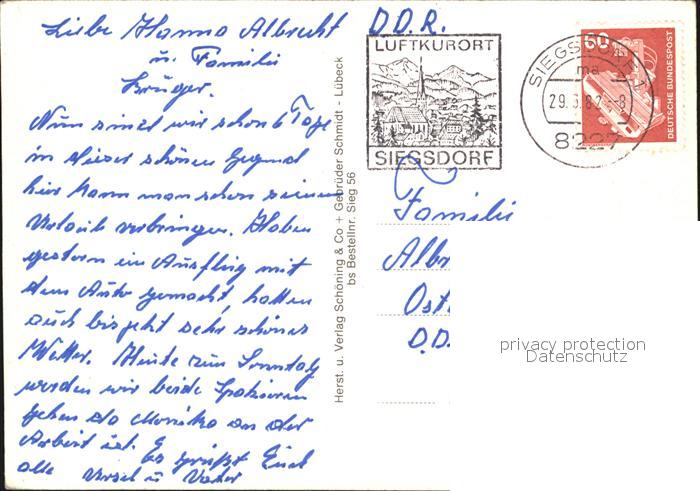 Liebe Hanna Albrecht
u. Familie
Krüger.
Nun sind wir schon 6 Tage
in dieser schönen Gegend
hier kann man schon seinen
Urlaub verbringen. Haben
gestern ein Ausflug mit
dem Auto gemacht, hatten
auch bis jetzt sehr schönes
Wetter. Heute zum Sonntag
werden wir beide Spatzieren
gehen da Monika an der
Arbeit ist. Es grüßt Euch
alle Ursel u Vater
Herst. u. Verlag Schöning & Co + Gebrüder Schmidt - Lübeck
bs Bestellnr. Sieg 56
D.D.R.
LUFTKURORT
SIEGSDORF
SIEGSDORF
ma
29.-8
8227
60
DEUTSCHE BUNDESPOST
Familie
Albr
Ost
D.D.
privacy protection
Datenschutz